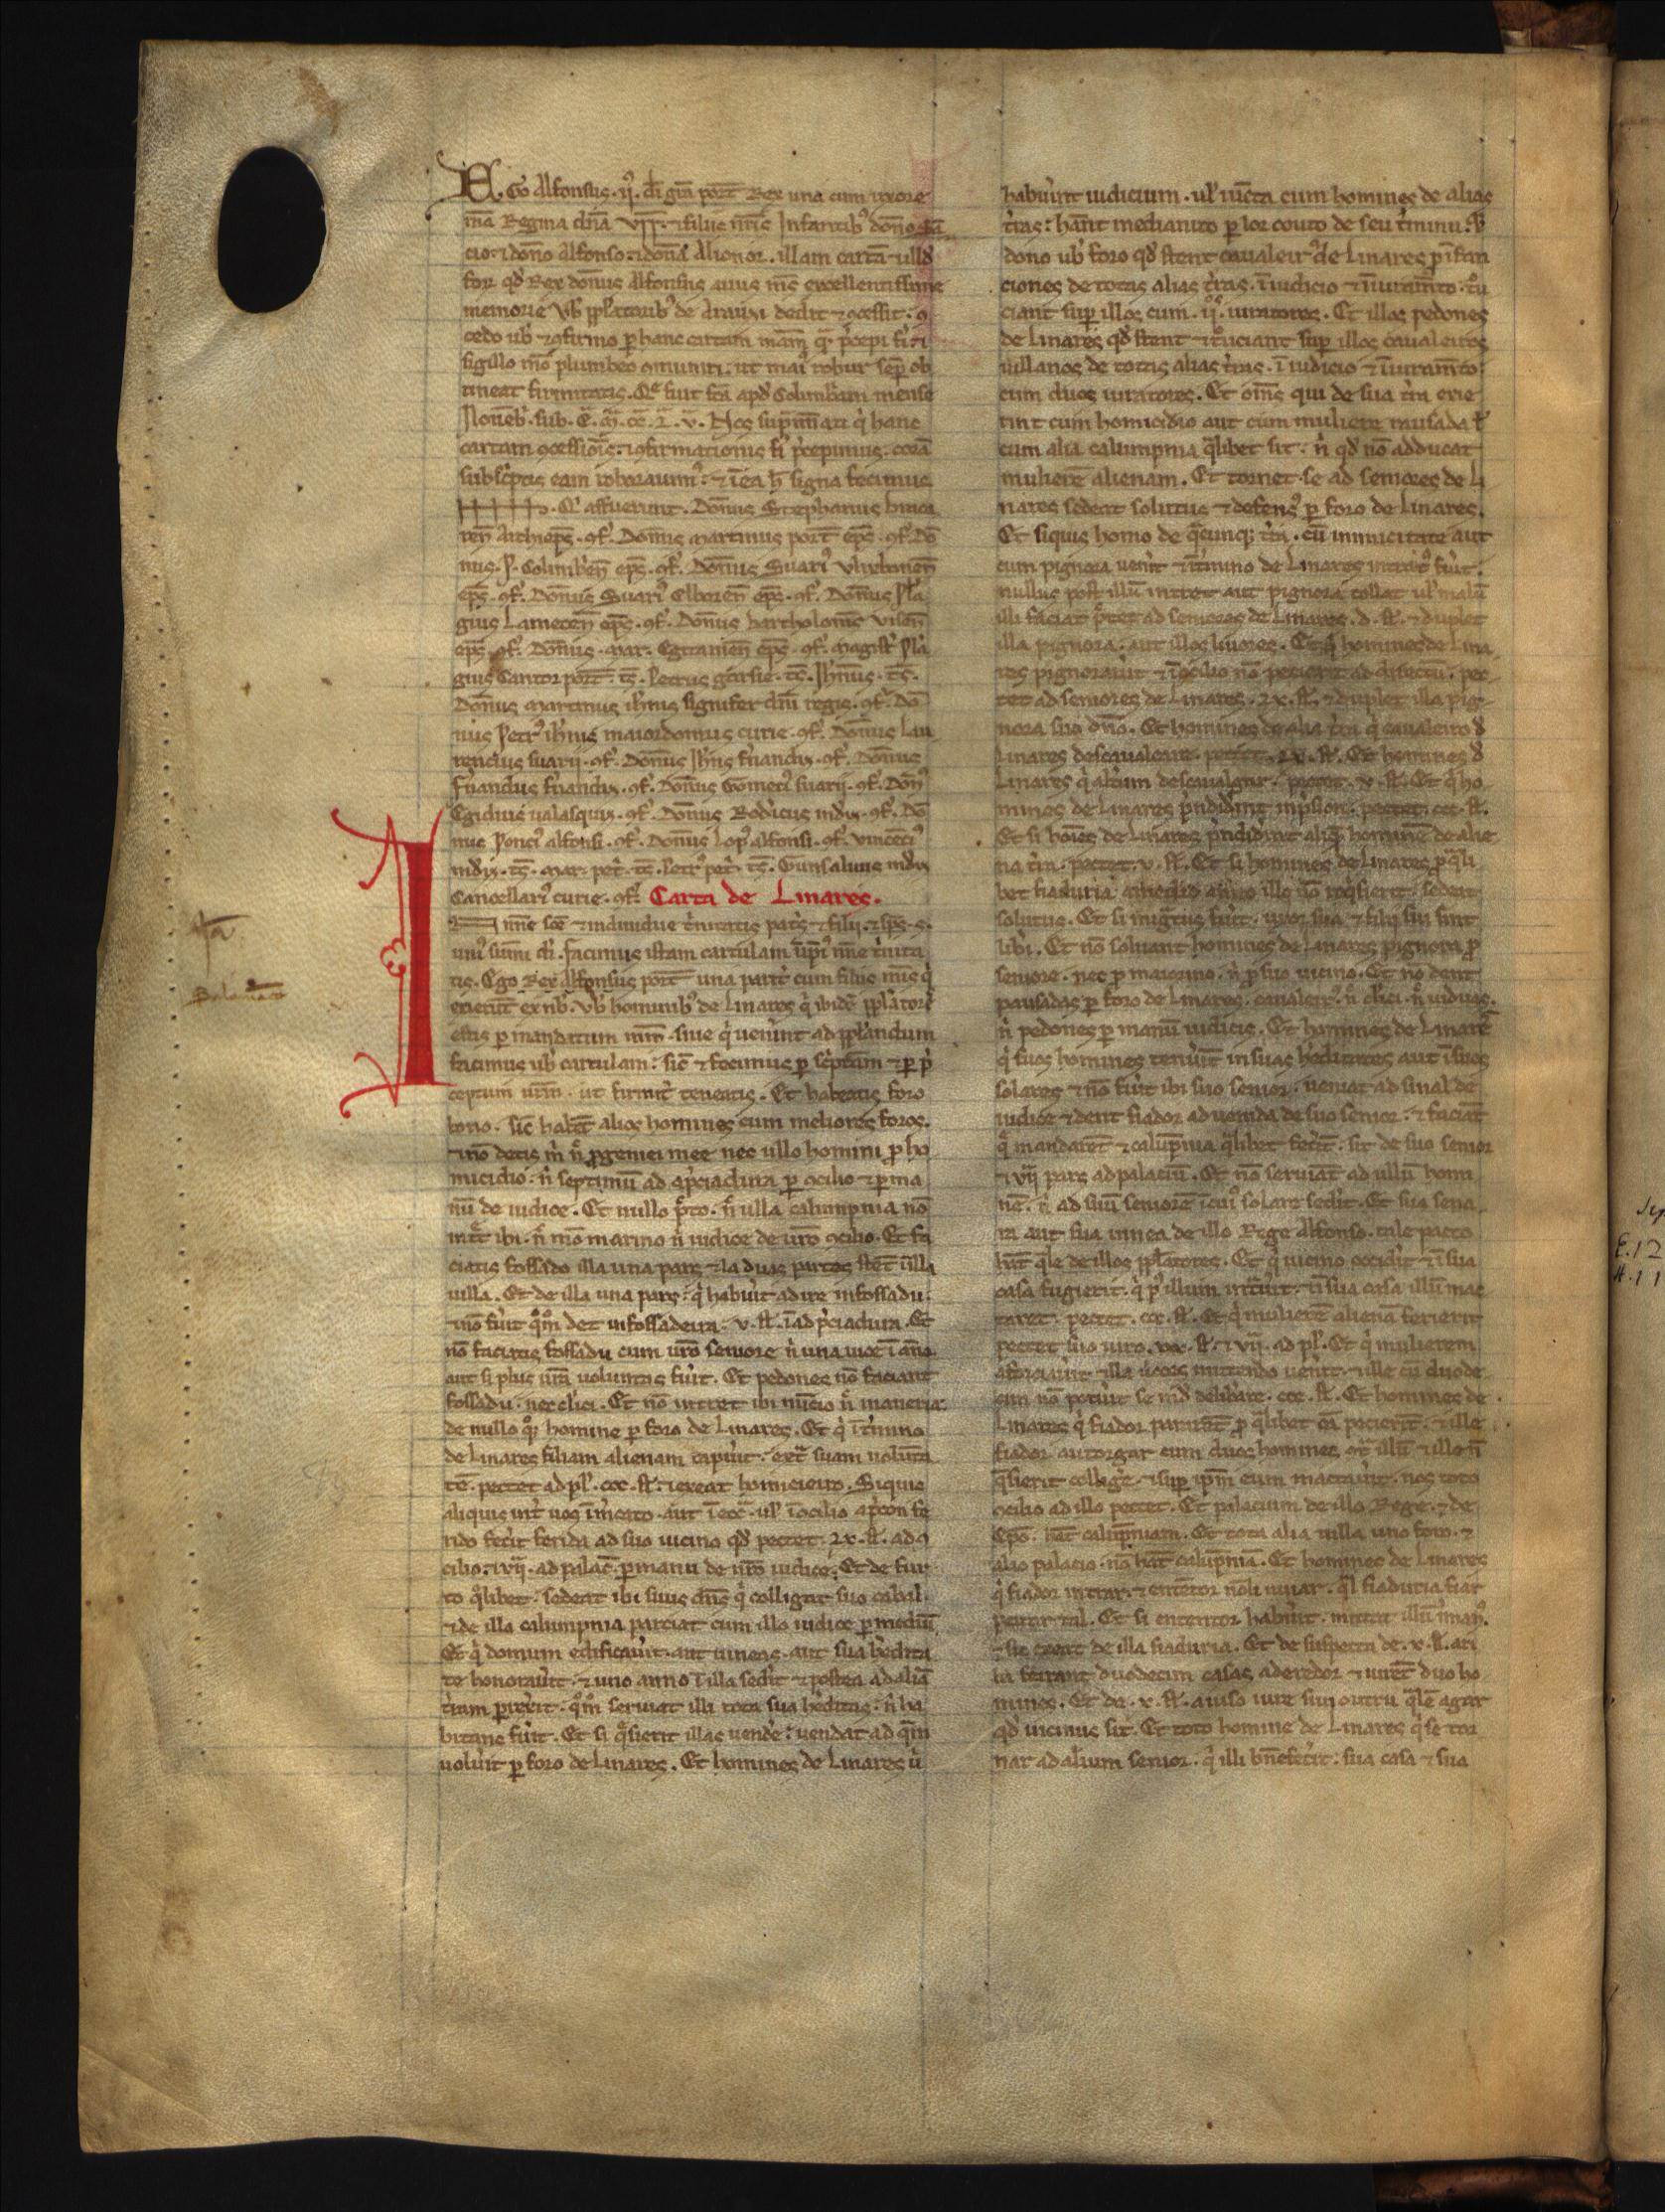 Ego Alfonsus .ij. di gra port Rex una cum uxore
mea Regina dna VRR. & filiis nris Infantib3 dono Sa
cio. & dono Alfonso. & dona Alionor. illam carta & illd
for qd Rex donus Alfonsus auus ms excellentissime
memorie Vob pplatorib3 de Araujxi dedit & ɔcessit. ɔ
cedo uob & ɔfirmo p hanc cartam meam q pcepi fi &
sigillo mo plumbeo ɔmuniri. ut mai robur semp ob
tineat firmitatis. Q fuit fca apd Colimbriam mense
Nouebr. sub. E. M. CC. L. V. Nos supnnati q hanc
cartam ɔcessiois. & ɔfirmationis fi pcepimus. cora
subscptis eam roborauim3. & i ea h signa fecimus
Q affuerunt. Donus Stephanus bracar
ren Archieps. ɔf. Donus Martinus port eps. ɔf. Do
nus. P. Colimbren eps. ɔf. Donus Suari3 Ulixbonen
eps. ɔf. Donus Suari3 Elboren eps. ɔf. Donus Pela
gius Lamecen eps. ɔf. Donus bartholomeus Visen
eps. ɔf. Donus. Mar. Egitanien eps. ɔf. Magist Pela
gius Cantor port. ts. Petrus garsie. ts. Johnus. ts.
Donus Martinus ihnis signifer dni regis. ɔf. Do
nus Petr3 ihnis maiordomus curie. ɔf. Donus Lau
rencius suarij. ɔf. Donus Johns fnandi. ɔf. Donus
fnandus fnandi. ɔf. Donus Gomeci3 suarij. ɔf. Don3
Egidius ualasquiz. ɔf. Donus Rodicus mdiz. ɔf. Do
nus Ponci3 alfonsi. ɔf. Donus Lop3 alfonsi. ɔf. Vincenci3
mdiz. ts. Mar. pet. ts. Petr3 pet. ts. Gunsaluus mdiz
Cancellari3 curie. ɔf. Carta de Linares.
I nne sce & indiuidue tinitatis patis & filii. & sps. s.
Facimus istam cartulam
tis. Ego Rex Alfonsus port una parit cum filiis meis q
exierint ex nob. Vob hominib3 de Linares q ibide pplatores
estis p mandatum nrm. siue q uenint ad pplandum
facimus uob cartulam. sic & fecimus p scptam & p p
ceptum nrm. ut firmit teneatis. Et habeatis foro
bono. sic habet alios homines cum meliores foros.
& no detis m n progeniei mee nec ullo homini pro ho
micidio. n septimu ad apciadura p ɔcilio & p ma
nu de iudice. Et nullo pto. n ulla calumpnia no
intet ibi. n mo marino n iudice de uro ɔcilio. Et fa
ciatis fossado illa una pars & la duas partes stet i illa
uilla. Et de illa una pars. q habuit ad ire in fossadu.
& no fuit qm det in fossadeira. v. sl. i ad pciadura. Et
no faciatis fossadu cum uro seniore n una uice i ano
aut si plus ura uoluntas fuit. Et pedones no faciant
fossadu. nec clici. Et no intret ibi nucio n maneria
de nullo q homine p foro de Linares. Et q i tmino
de Linares filiam alienam rapuit. ext suam uolunta
te. pectet ad pl. ccc. sl. & exeat homicieiro. Siquis
aliquis int uos i mcato. aut i ecc. ul i ɔcilio apcon fe
rido fecit ferida ad suo uicino qd pectet. Lx. sl. ad ɔ
cilio. & vij. ad palac. p manu de uro iudice. Et de fur
to qlibet. sedeat ibi suus dns q colligat suo cabal.
& de illa calumpnia parciat cum illo iudice p mediu
Et q domum edificauit. aut uineas. aut sua hedita
te honorauit. & uno anno i illa sedit & postea ad alia
tram transierit. qm seruiat illi tota sua heditas. n ha
bitans fuit. Et si qsierit illas uende. uendat ad qm
uoluit p foro de Linares. Et homines de Linares u
habuint iudicium. ul iucta cum homines de alias
tras. hant medianito p lor couto de seu tminu. &
dono uob foro qd stent caualeiros de Linares p ifan
ciones de totas alias tras. i iudicio & i iuramto. & tu
ciant sup illos cum. ij. iuratores. Et illos pedones
de Linares qd stent & tuciant sup illos caualeiros
uillanos de totas alias tras. i iudicio & i iuramto
cum duos iuratores. Et oms qui de sua tra exie
rint cum homicidio aut cum muliere rausada ul
cum alia calumpnia qlibet sit. n qd no adducat
muliere alienam. Et tornet se ad seniores de Li
nares sedeat solutus & defenso p foro de Linares.
Et siquis homo de qcunq tra. cu inimicitate aut
cum pignora uenit & i tmino de Linares intrat3 fuit.
nullus post illu intret aut pignora tollat ul malu
illi faciat pectet ad seniores de Linares. d. sl. & duplet
illa pignora. aut illos liuores. Et q homines de Lina
res pignorauit & i ɔcilio no pecierit ad directu. pec
tet ad seniores de Linares. Lx. sl. & duplet illa pig
nora suo dno. Et homines de alia tra q caualeiro d
Linares descaualgaret pectet. Lx. sl. Et homines d
Linares q altum descaualgar. pectet. x. sl. Et q ho
mines de Linares pndidint in pision. pectet. ccc. sl.
Et si hoies de Linares pndidint aliq homine de alie
na tra. pectet. v. sl. Et si homines de Linares p qli
bet fiaduria. a medio anno illo no reqsierit. sedeat
solutus. Et si migtus fuit. uxor sua & filii sui sint
libi. Et no soluant homines de Linares pignora p
seniore. nec p maiorino. n p suo uicino. Et no dent
pausadas p foro de Linares. caualeir3. n clici. n uiduas.
n pedones p manu iudicis. Et homines de Linares
q suos homines tenuit in suas heditates aut i suos
solares & no fuit ibi suo senior. ueniat ad sinal de
iudice & dent fiador ad uenida de suo senior. & faciat
q mandaret & calupnia qlibet fecet. sit de suo senior
& vij pars ad palaciu. Et no seruiat ad ullu homi
ne. n ad suu seniore i cui3 solare sedit. Et sua sena
ra aut sua uinea de illo Rege Alfonso. tale pacto
hat qle de illos pplatores. Et q uicino occidit & i sua
casa fugierit. q p illum intuit. & i sua casa illu mac
taret. pectet. ccc. sl. Et q muliere aliena ferierit
pectet suo uiro. xxx. sl. & vij. ad pl. Et q mulierem
aforciauit & illa uoces mittendo uenit. & ille cu duode
cim no potuit se inde delibare. ccc. sl. Et homines de
Linares q fiador parauit p qlibet ca pecierit. & ille
fiador autorgar cum duos homines ont illu & illo n
qsierit collige. & sup ipm eum mactauit. nos toto
ɔcilio ad illo pectet. Et palacium de illo Rege. & de
Epo. hat calupniam. Et tota alia uilla uno foro. &
alio palacio. no hat calupnia. Et homines de Linares
q fiador intrar. & ententor noli iuuar. ql fiaduria fiar
peitar tal. Et si ententor habuit. mitta illu i man3.
& sic exeat de illa fiaduria. Et de suspecta de. x. sl. ari
ba ferant duodecim casas aderedor & iuret duo ho
mines. Et de. x. sl. aiuso iure sui outru qle agar
qd uicinus sit. Et toto homine de Linares q se tor
nar ad alium senior. q illi bnefecit. sua casa & sua